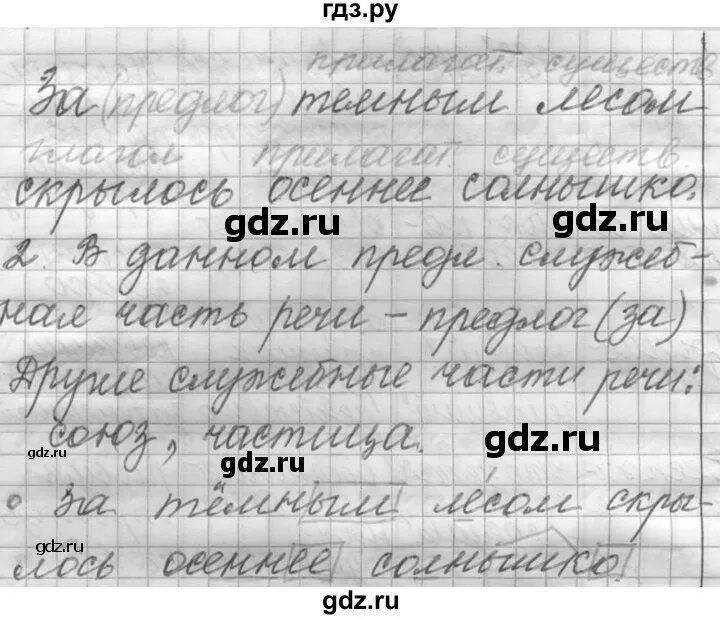 гдз.ру
прилагат. существ.
За (предлог) темным лесом
глагол прилагат. существ.
скрылось осеннее солнышко.
gdz.ru
gdz.ru
2. В данном предл. служеб-
ная часть речи – предлог (за)
Другие служебные части речи:
союз, частица.
gdz.ru
gdz.ru
gdz.ru
За тёмным лесом скры-
gdz.ru
лось осеннее солнышко.
gdz.ru